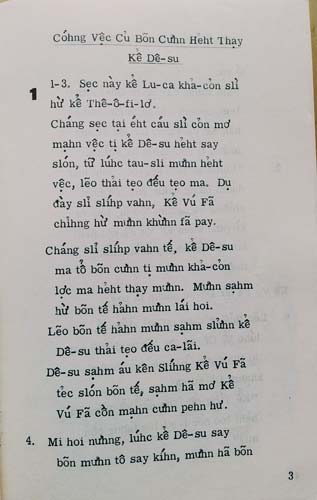 Cóhng Vệc Củ Bõn Cưhn Hẻht Thạy
Kể Dê-su
1-3. Sẹc này kể Lu-ca khả-cỏn slỉ
1
hừ kể Thê-ô-fi-lơ.
Cháng sẹc tại ẻht cáu slỉ cỏn mơ
mạhn vệc tị kể Dê-su hẻht say
slón, tữ lúhc tau-sli mưhn hẻht
vệc, lẽo thải tẹo đếu tẹo ma. Dụ
đảy slỉ slíhp vahn, Kể Vú Fã
chỉhng hừ mưhn khửhn fã pay.
Cháhng slỉ slíhp vahn tế, kể Dê-su
ma tỏ bõn cưhn tị mưhn khả-cỏn
lợc ma hẻht thạy mưhn. Mưhn sạhm
hừ bõn tế hảhn mưhn lái hoi.
Lẽo bõn tế hảhn mưhn sạhm slửhn kể
Dê-su thải tẹo đếu ca-lãi.
Dê-su sạhm áu kên Slíhng Kể Vú Fã
tẻc slón bõn tế, sạhm hã mơ Kể
Vú Fã cỏn mạhn cưhn pehn hư.
4. Mi hoi nưhng, lúhc kể Dê-su say
bõn mưhn tô say kíhn, mưhn hã bõn
3